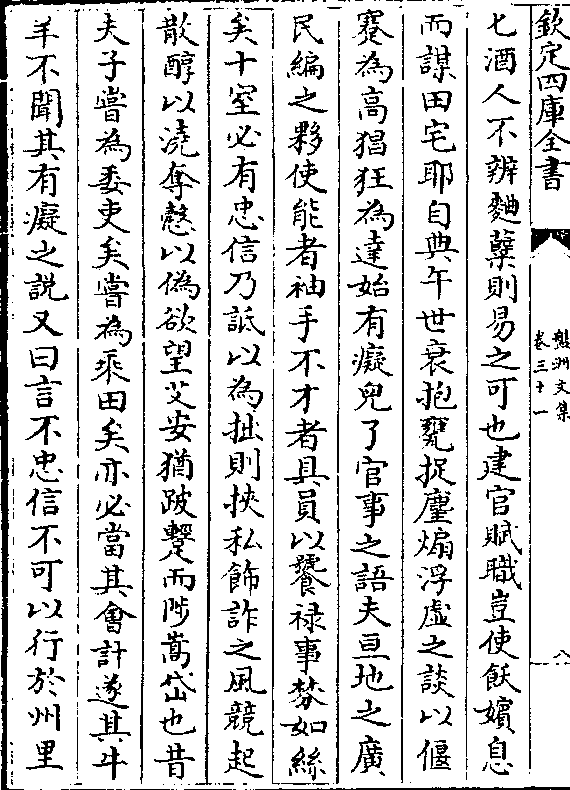 欽定四庫全書
盤洲文集
卷三十一
八
七酒人不辨麴糵則易之可也建官賦職豈使飫嬪息
而謀田宅耶自典午世衰抱甕捉麈煽浮虛之談以偃
蹇為高猖狂為達始有癡兒了官事之語夫亘地之廣
民編之夥使能者袖手不才者具員以饕祿事棼如絲
矣十室必有忠信乃詆以為拙則挾私飾詐之風競起
散醇以澆奪慤以偽欲望艾安猶跛躄而陟嵩岱也昔
夫子嘗為委吏矣嘗為乘田矣亦必當其會計遂其牛
羊不聞其有癡之説又曰言不忠信不可以行於州里